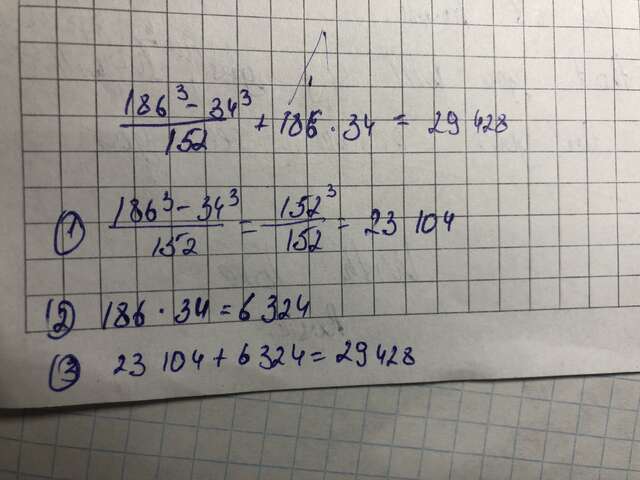 186³ - 34³ / 152 + 186 · 34 = 29 428
① 186³ - 34³ / 152 = 152³ / 152 = 23 104
② 186 · 34 = 6 324
③ 23 104 + 6 324 = 29 428